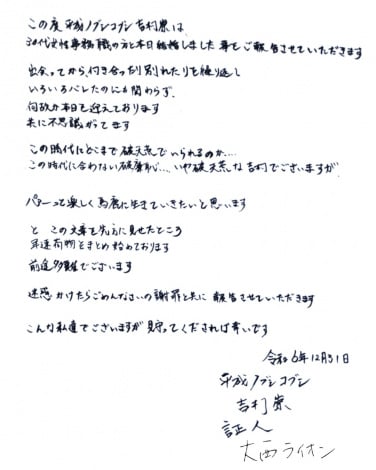 この度 平成ノブシコブシ 吉村崇は
30代女性事務職の方と本日結婚しました事をご報告させていただきます
出会ってから付き合ったり別れたりを繰り返し
いろいろバレたのにも関わらず、
何故か本日を迎えております
共に不思議がってます
この時代にどこまで破天荒でいられるのか…
この時代に合わない破廉恥…いや破天荒な吉村でございますが
パァーっと楽しく馬鹿に生きていきたいと思います
と この文章を先方に見せたところ
早速荷物をまとめ始めております
前途多難でございます
迷惑かけたらごめんなさいの謝罪と共に報告させていただきます
こんな私達でございますが見守ってくだされば幸いです
令和6年12月31日
平成ノブシコブシ
吉村崇
証人
大西ライオン